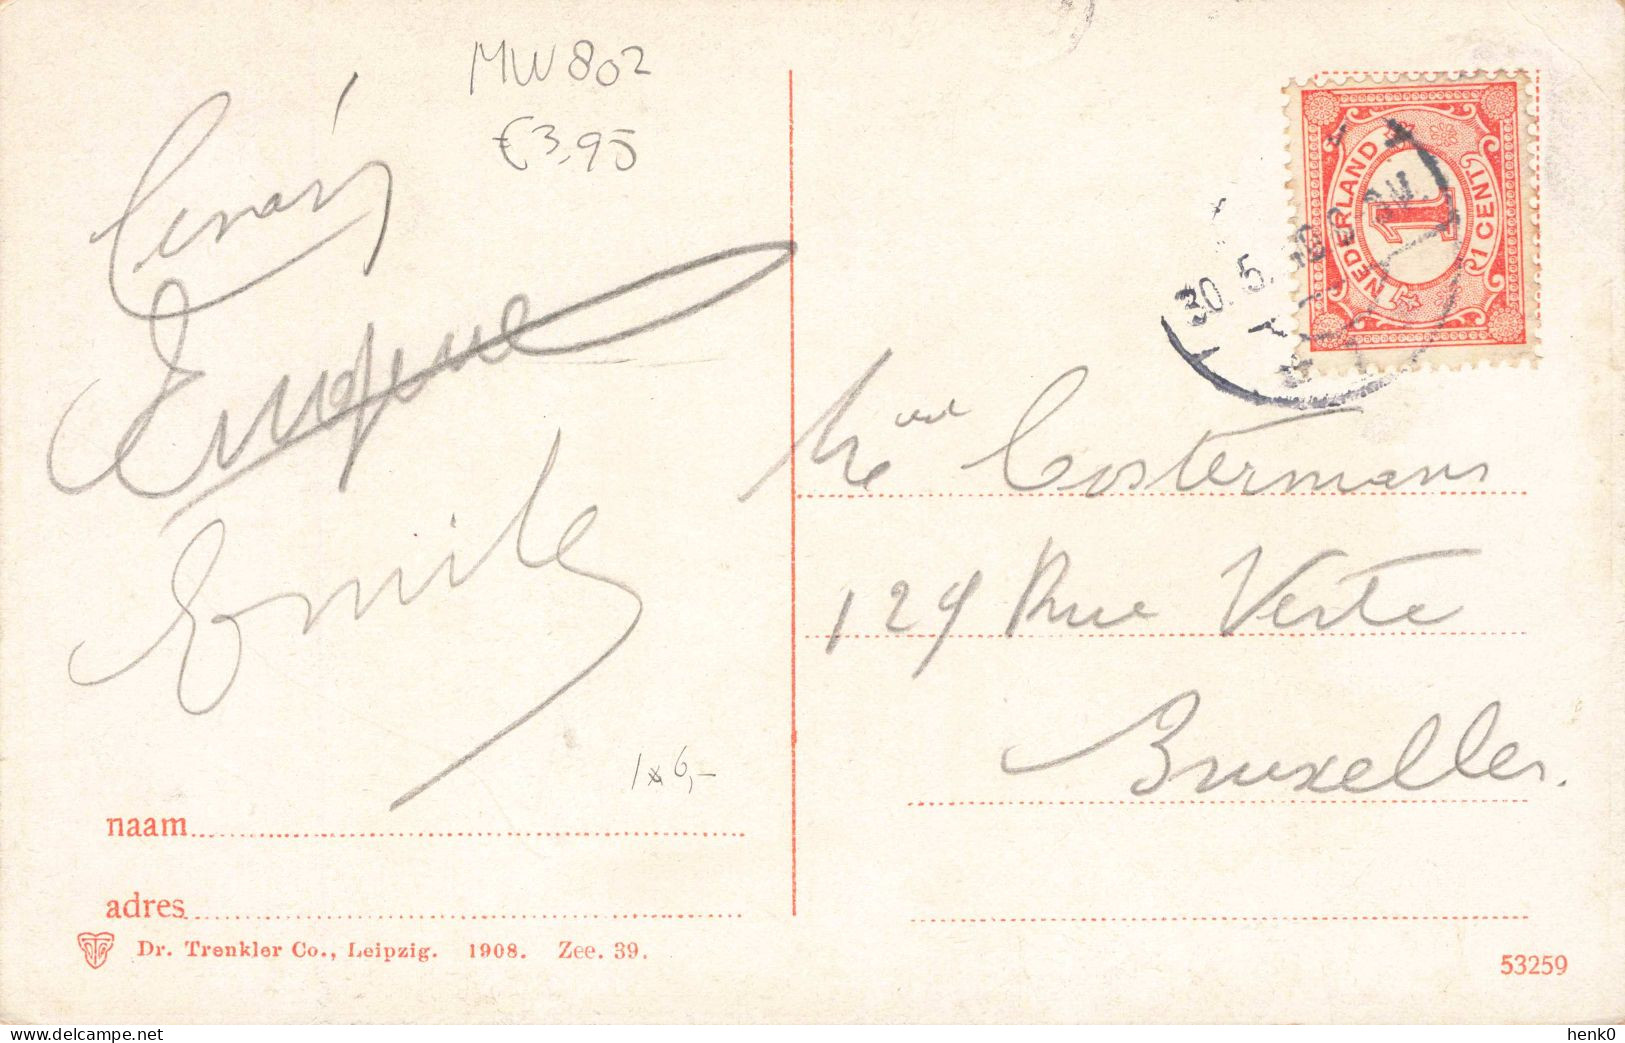 MW 802
€3,95
Eugène
Emile
1x6,-
naam
adres
Dr. Trenkler Co., Leipzig. 1908. Zee. 39.
NEDERLAND
1
1 CENT
30. 5.
Costermans
129 Rue Verte
Bruxelles.
53259
henk0
www.delcampe.net